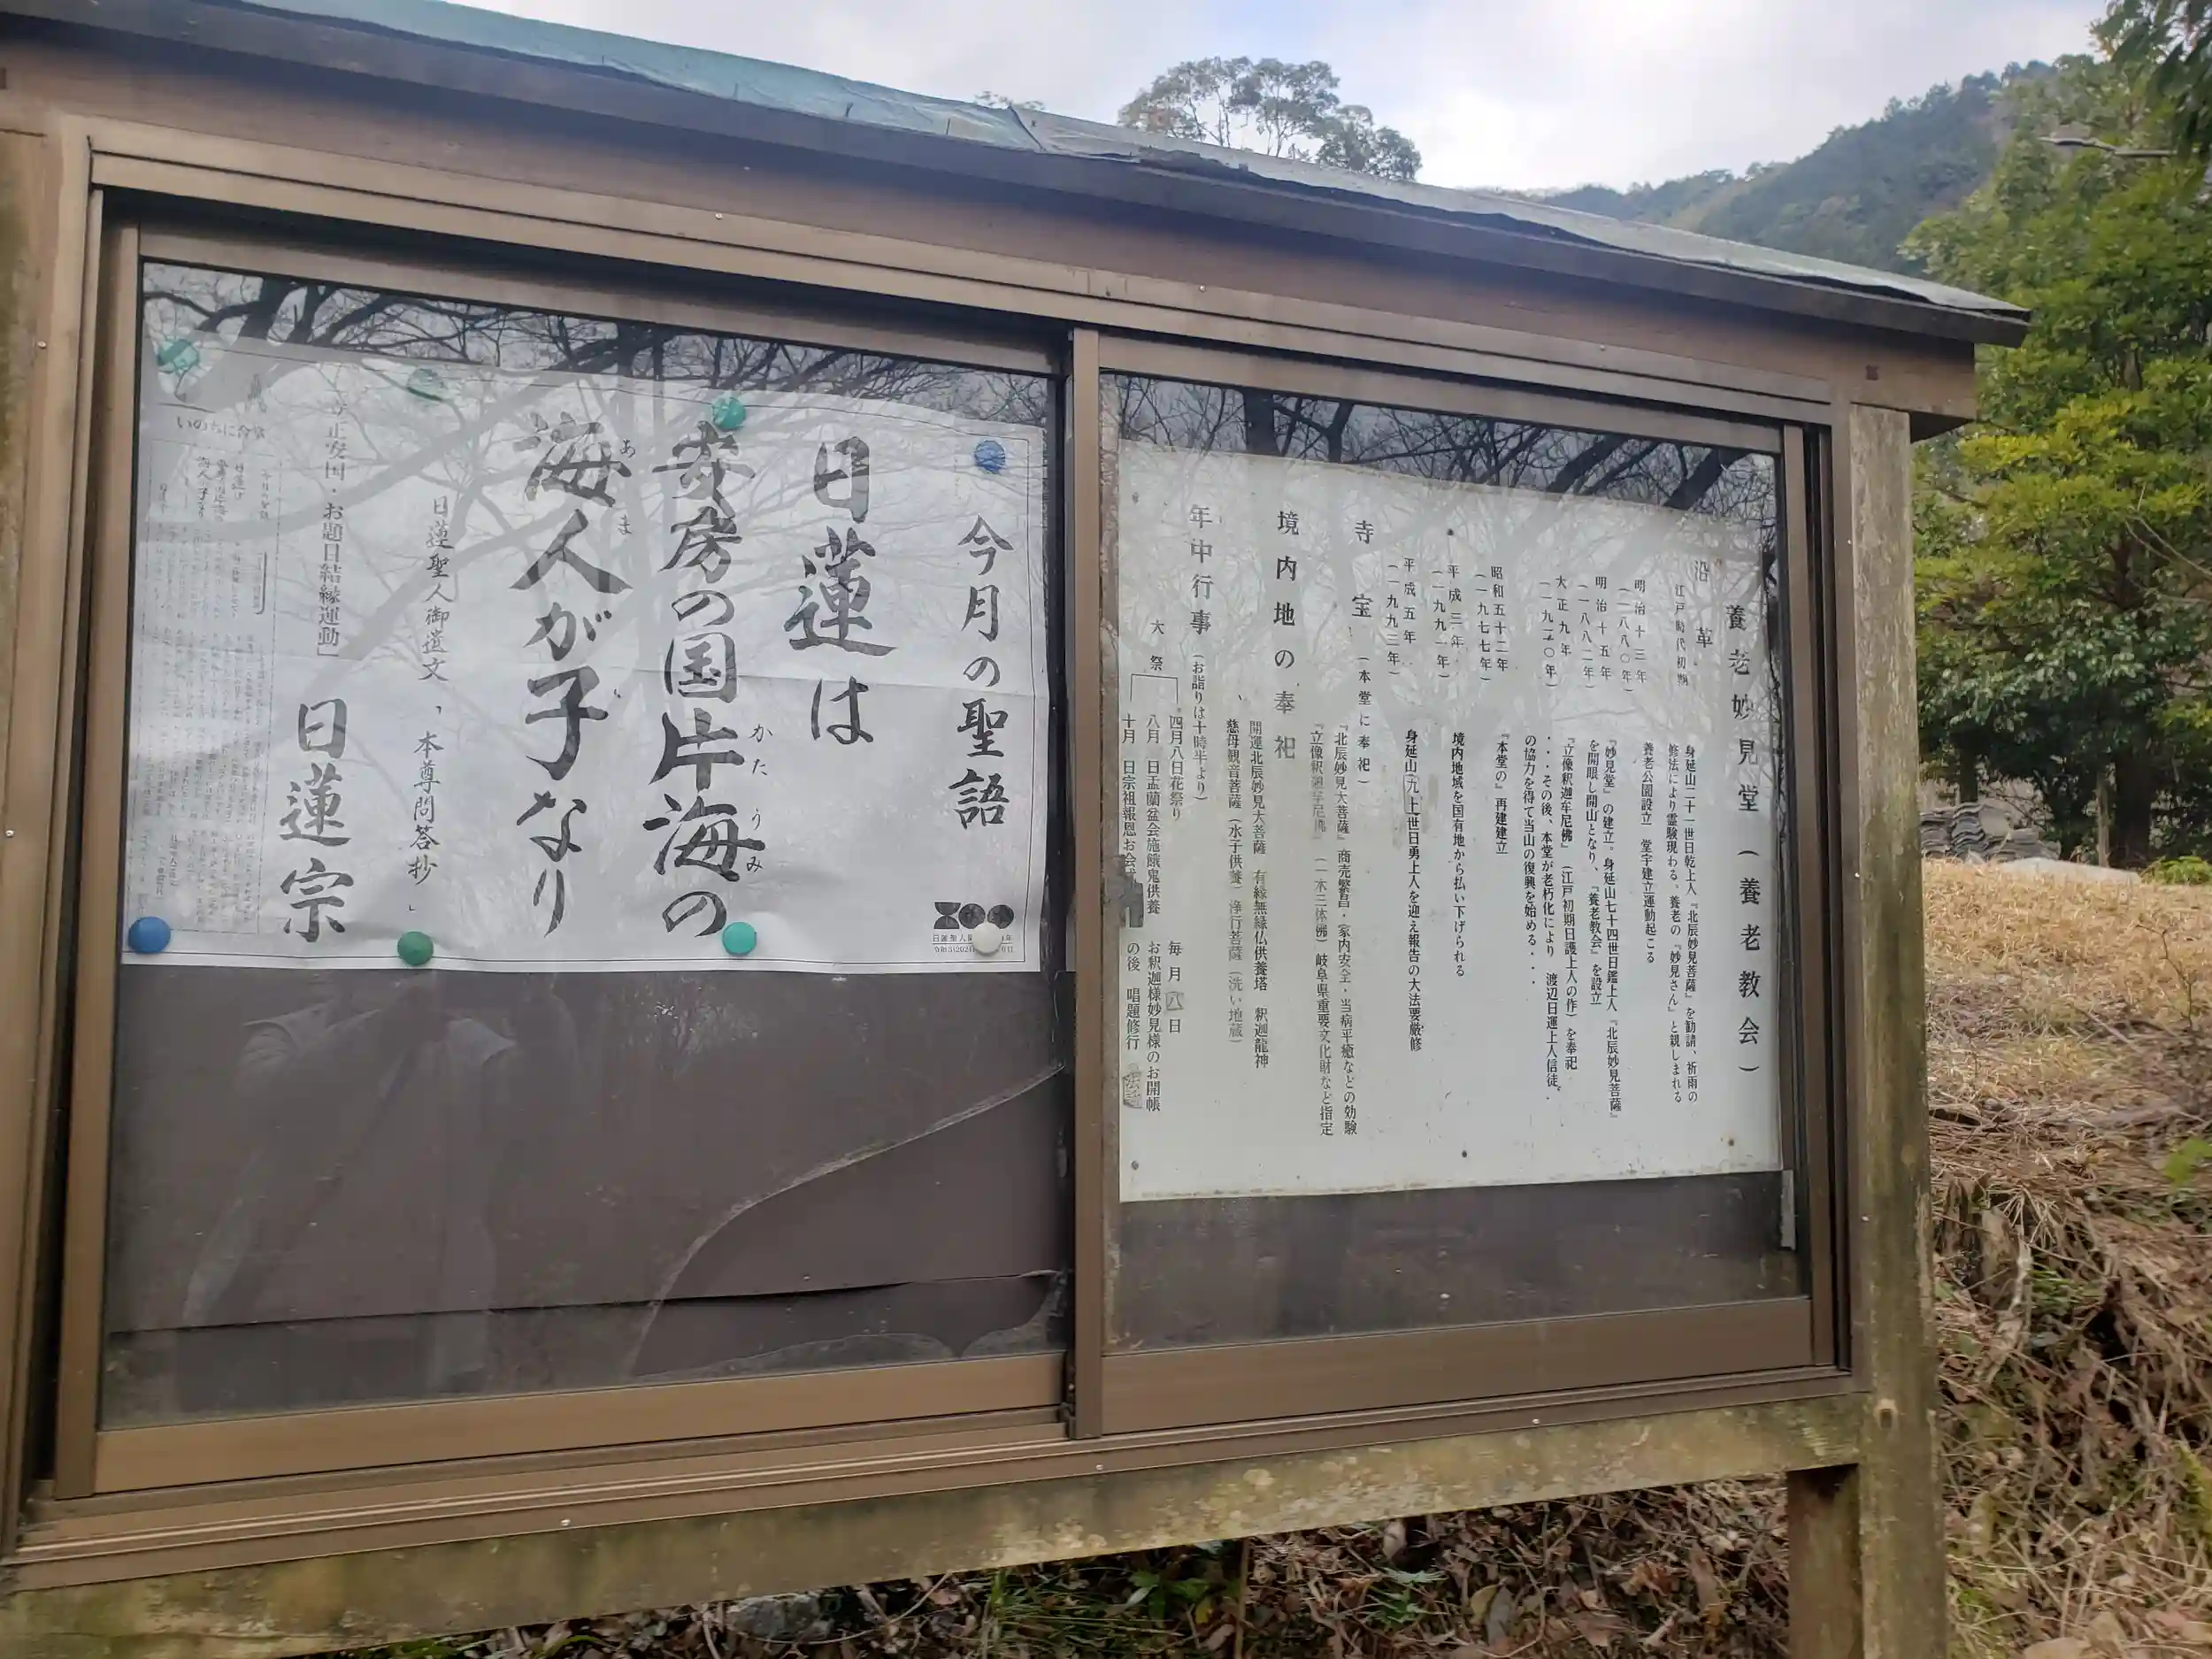 養老妙見堂(養老教会)
沿革
江戸時代初期
身延山二十一世日乾上人『北辰妙見菩薩』を勧請、祈雨の
修法により霊験現わる。養老の『妙見さん』と親しまれる
明治十三年
(一八八〇年)
養老公園設立 堂宇建立運動起こる
明治十五年
(一八八二年)
『妙見堂』の建立。身延山七十四世日鑑上人『北辰妙見菩薩』
を開眼し開山となり、『養老教会』を設立
大正九年
(一九二〇年)
『立像釈迦牟尼佛』(江戸初期日護上人の作)を奉祀
・・・その後、本堂が老朽化により 渡辺日運上人信徒
の協力を得て当山の復興を始める・・・
昭和五十二年
(一九七七年)
『本堂の』再建建立
平成三年
(一九九一年)
境内地域を国有地から払い下げられる
平成五年
(一九九三年)
身延山九十世日勇上人を迎え報告の大法要厳修
寺宝(本堂に奉祀)
『北辰妙見大菩薩』商売繁昌・家内安全・当病平癒などの効験
『立像釈迦牟尼佛』(一木三体佛)岐阜県重要文化財など指定
境内地の奉祀
開運北辰妙見大菩薩 有縁無縁仏供養塔 釈迦龍神
慈母観音菩薩(水子供養)浄行菩薩(洗い地蔵)
年中行事(お詣りは十時半より)
大祭
四月八日花祭り
八月 日盂蘭盆会施餓鬼供養
十月 日宗祖報恩お会式
毎月八日
お釈迦様妙見様のお開帳
の後 唱題修行
今月の聖語
日蓮は
安房の国片海の
かたうみ
海人が子なり
あま
日蓮聖人御遺文「本尊問答抄」
立正安国・お題目結縁運動」
日蓮宗
いのちに合掌